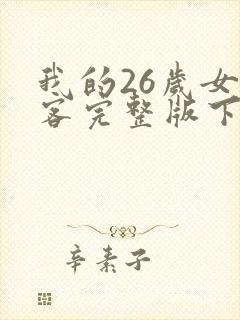 我的26歲女
客完整版下
辛素子